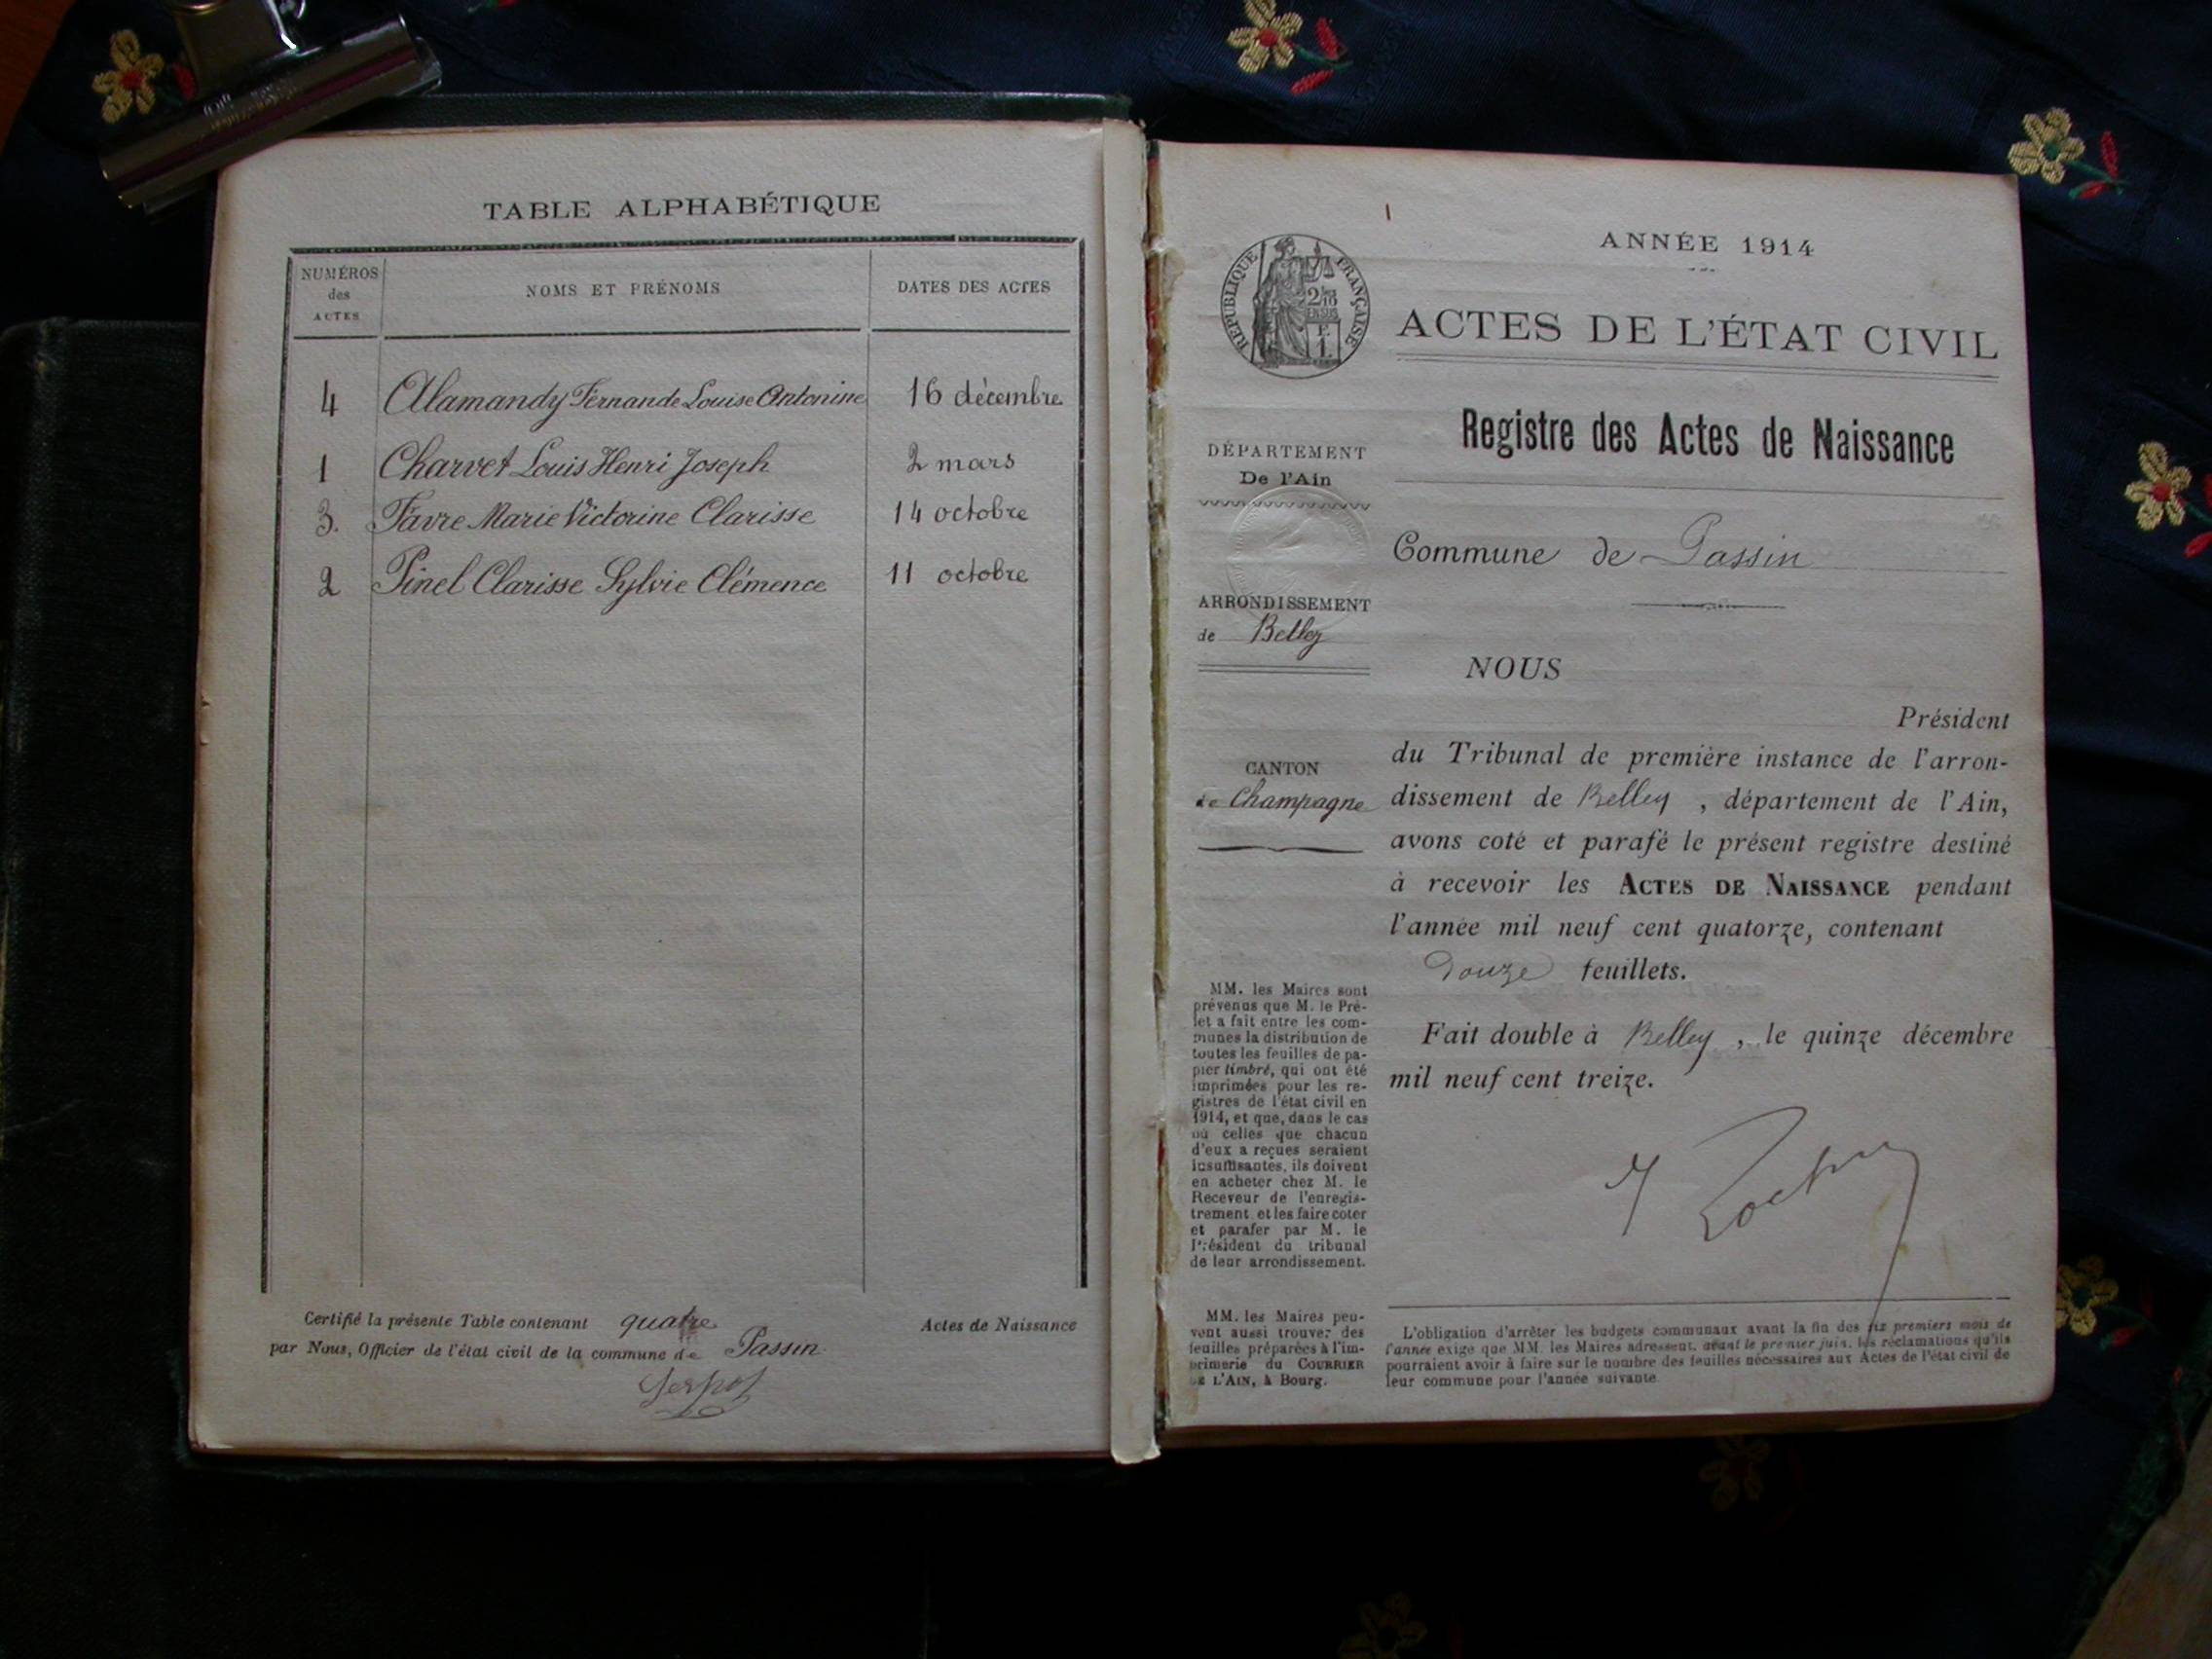 TABLE ALPHABÉTIQUE
NUMÉROS
des
ACTES
NOMS ET PRÉNOMS
DATES DES ACTES
4 Alamandy Fernande Louise Antonine 16 décembre
1 Charvet Louis Henri Joseph 2 mars
3. Favre Marie Victorine Clarisse 14 octobre
2 Pinel Clarisse Sylvie Clémence 11 octobre
Certifié la présente Table contenant quatre Actes de Naissance
par Nous, Officier de l'état civil de la commune de Passin
1
RÉPUBLIQUE FRANÇAISE
ANNÉE 1914
ACTES DE L'ÉTAT CIVIL
Registre des Actes de Naissance
DÉPARTEMENT
De l'Ain
Commune de Passin
ARRONDISSEMENT
de Belley
CANTON
de Champagne
NOUS
Président
du Tribunal de première instance de l'arron-
dissement de Belley, département de l'Ain,
avons coté et parafé le présent registre destiné
à recevoir les ACTES DE NAISSANCE pendant
l'année mil neuf cent quatorze, contenant
Douze feuillets.
Fait double à Belley, le quinze décembre
mil neuf cent treize.
MM. les Maires sont
prévenus que M. le Pré-
fet a fait entre les com-
munes la distribution de
toutes les feuilles de pa-
pier timbré, qui ont été
imprimées pour les re-
gistres de l'état civil en
1914, et que, dans le cas
où celles que chacun
d'eux a reçues seraient
insuffisantes, ils doivent
en acheter chez M. le
Receveur de l'enregis-
trement et les faire coter
et parafer par M. le
Président du tribunal
de leur arrondissement.
MM. les Maires peu-
vent aussi trouver des
feuilles préparées à l'im-
primerie du COURRIER
DE L'AIN, à Bourg.
L'obligation d'arrêter les budgets communaux avant la fin des six premiers mois de
l'année exige que MM. les Maires adressent, avant le premier juin, les réclamations qu'ils
pourraient avoir à faire sur le nombre des feuilles nécessaires aux Actes de l'état civil de
leur commune pour l'année suivante.